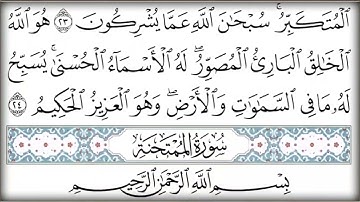 ٱلۡمُتَكَبِّرُۚ سُبۡحَٰنَ ٱللَّهِ عَمَّا يُشۡرِكُونَ ٢٣ هُوَ ٱللَّهُ
ٱلۡخَٰلِقُ ٱلۡبَارِئُ ٱلۡمُصَوِّرُۖ لَهُ ٱلۡأَسۡمَآءُ ٱلۡحُسۡنَىٰۚ يُسَبِّحُ
لَهُۥ مَا فِي ٱلسَّمَٰوَٰتِ وَٱلۡأَرۡضِۖ وَهُوَ ٱلۡعَزِيزُ ٱلۡحَكِيمُ ٢٤
سُورَةُ ٱلۡمُمۡتَحَنَةِ
بِسۡمِ ٱللَّهِ ٱلرَّحۡمَٰنِ ٱلرَّحِيمِ